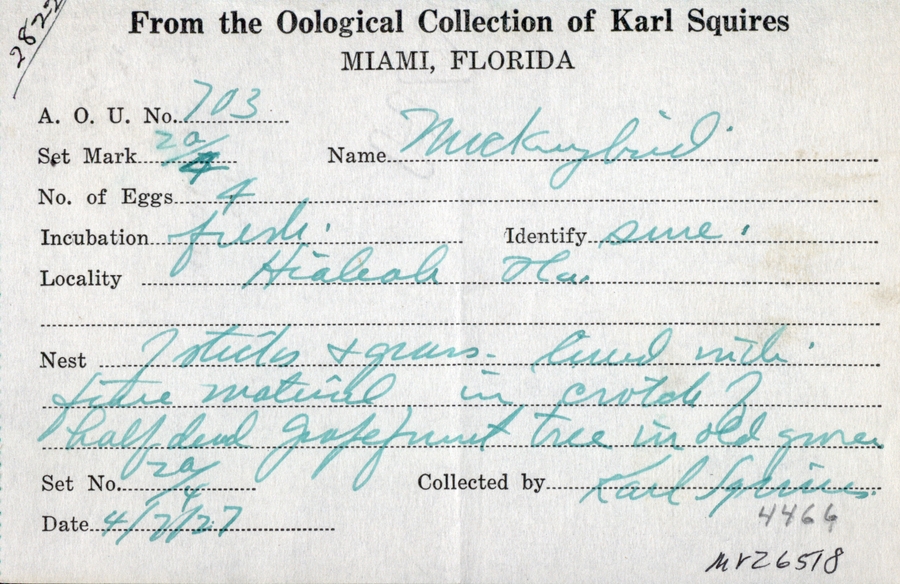 2822
From the Oological Collection of Karl Squires
MIAMI, FLORIDA
A. O. U. No. 703
Set Mark 2a/4 Name Mockingbird
No. of Eggs 4
Incubation fresh. Identify sure.
Locality Hialeah Fla.
Nest of sticks & grass- lined with
fibre material in crotch of
half dead Grapefruit tree in old grove
Set No. 2a/4 Collected by Karl Squires.
Date 4/7/27
4466
MVZ6518